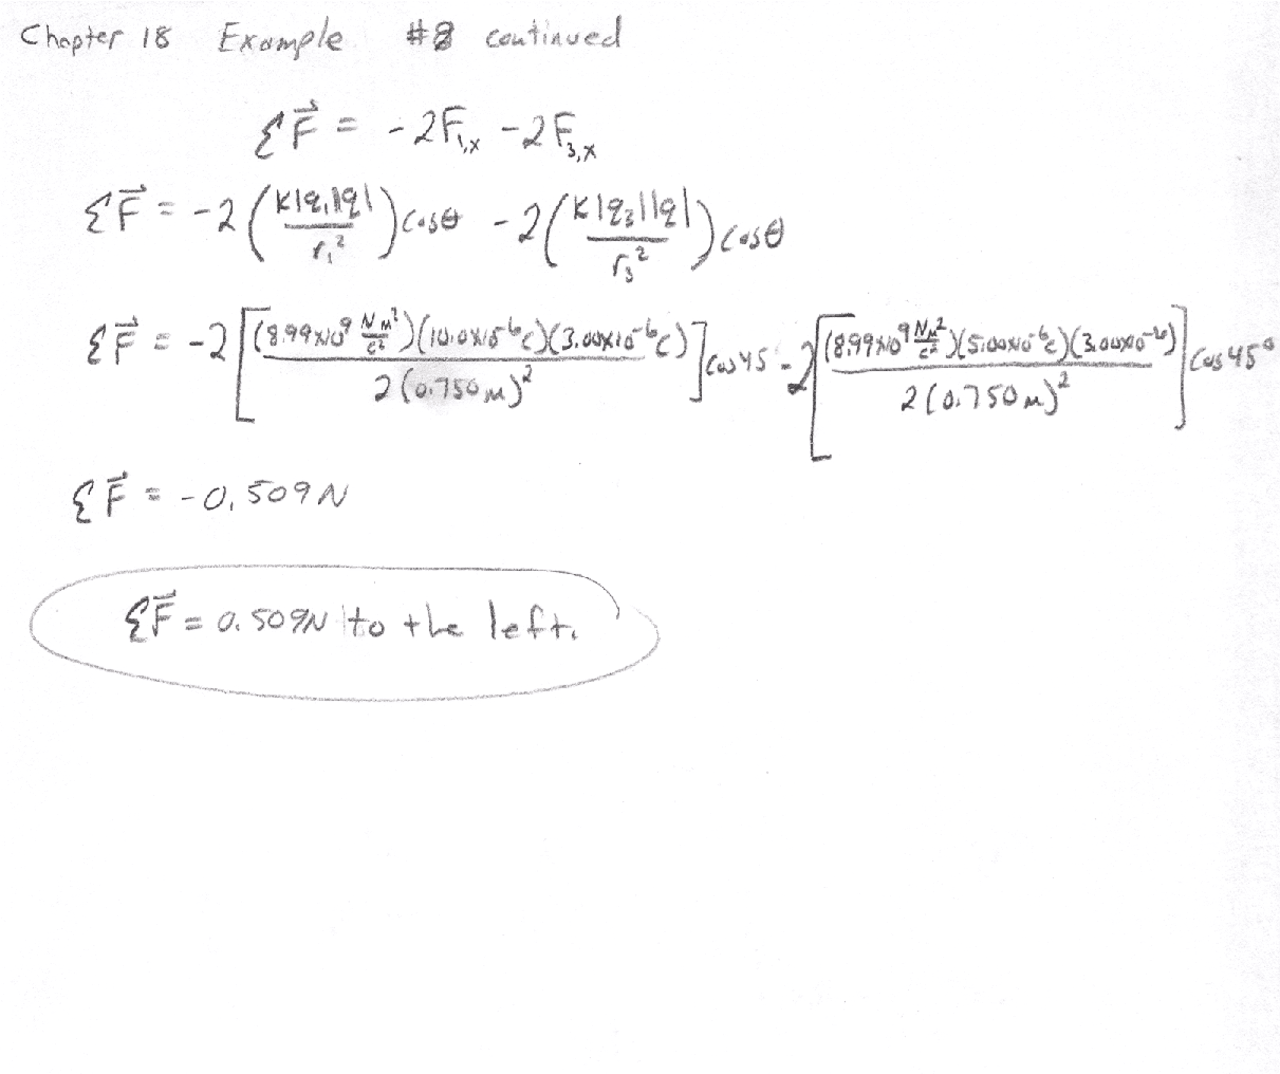 Chapter 18 Example #8 continued
ΣF⃗ = -2F₁,ₓ -2F₃,ₓ
ΣF⃗ = -2(k|q₁||q|/r₁²)cosθ -2(k|q₃||q|/r₃²)cosθ
ΣF⃗ = -2[(8.99x10⁹ Nm²/c²)(10.0x10⁻⁶c)(3.00x10⁻⁶c)/2(0.750m)²]cos45 -2[(8.99x10⁹ Nm²/c²)(5.00x10⁻⁶c)(3.00x10⁻⁶)/2(0.750m)²]cos45°
ΣF⃗ = -0.509N
ΣF⃗ = 0.509N to the left.